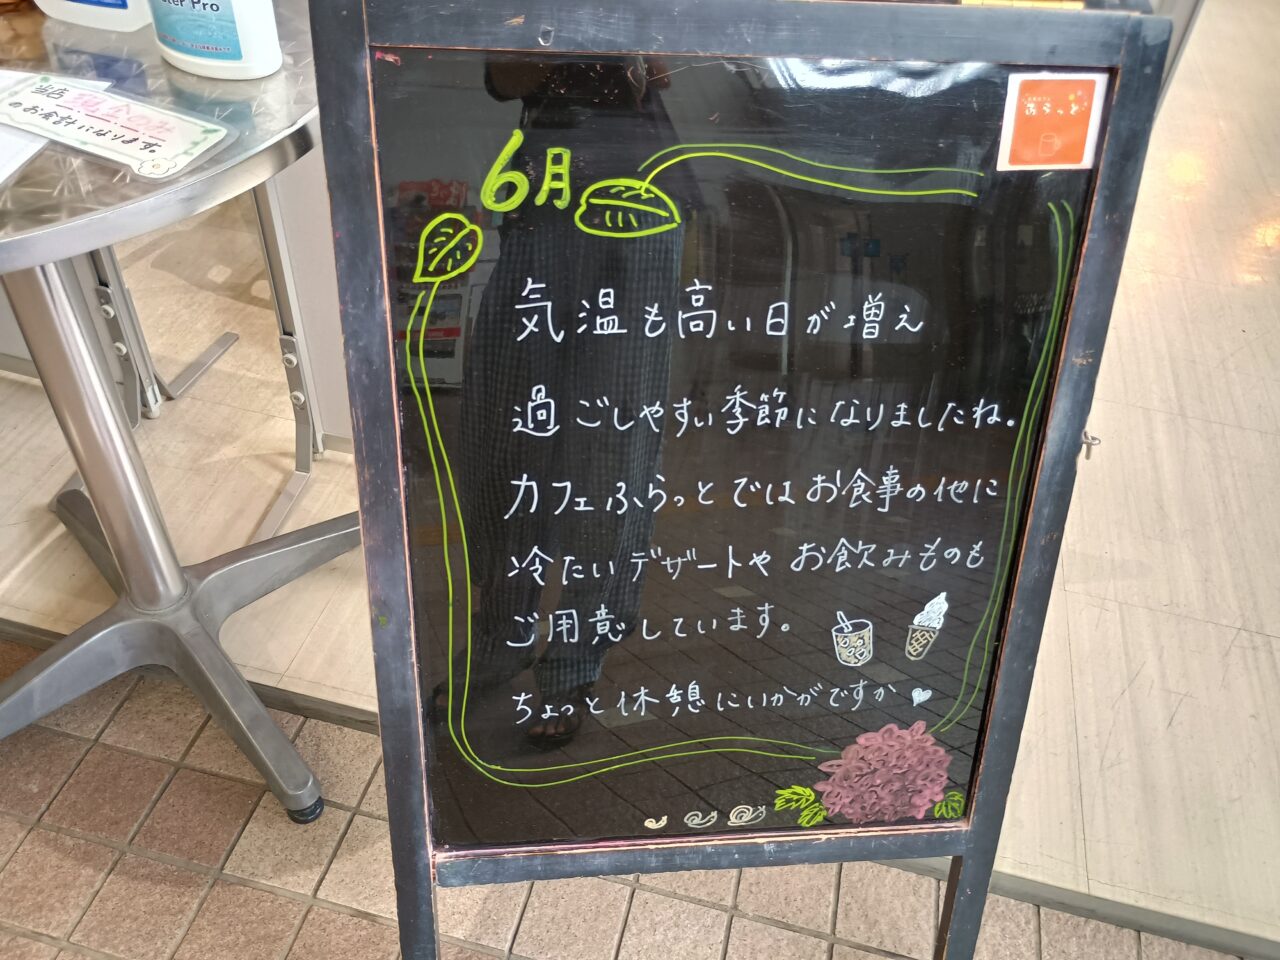 ter Pro
当店現金のみ
のお会計になります。
ふらっと
6月
気温も高い日が増え
過ごしやすい季節になりましたね。
カフェふらっとではお食事の他に
冷たいデザートやお飲みものも
ご用意しています。
ちょっと休憩にいかがですか